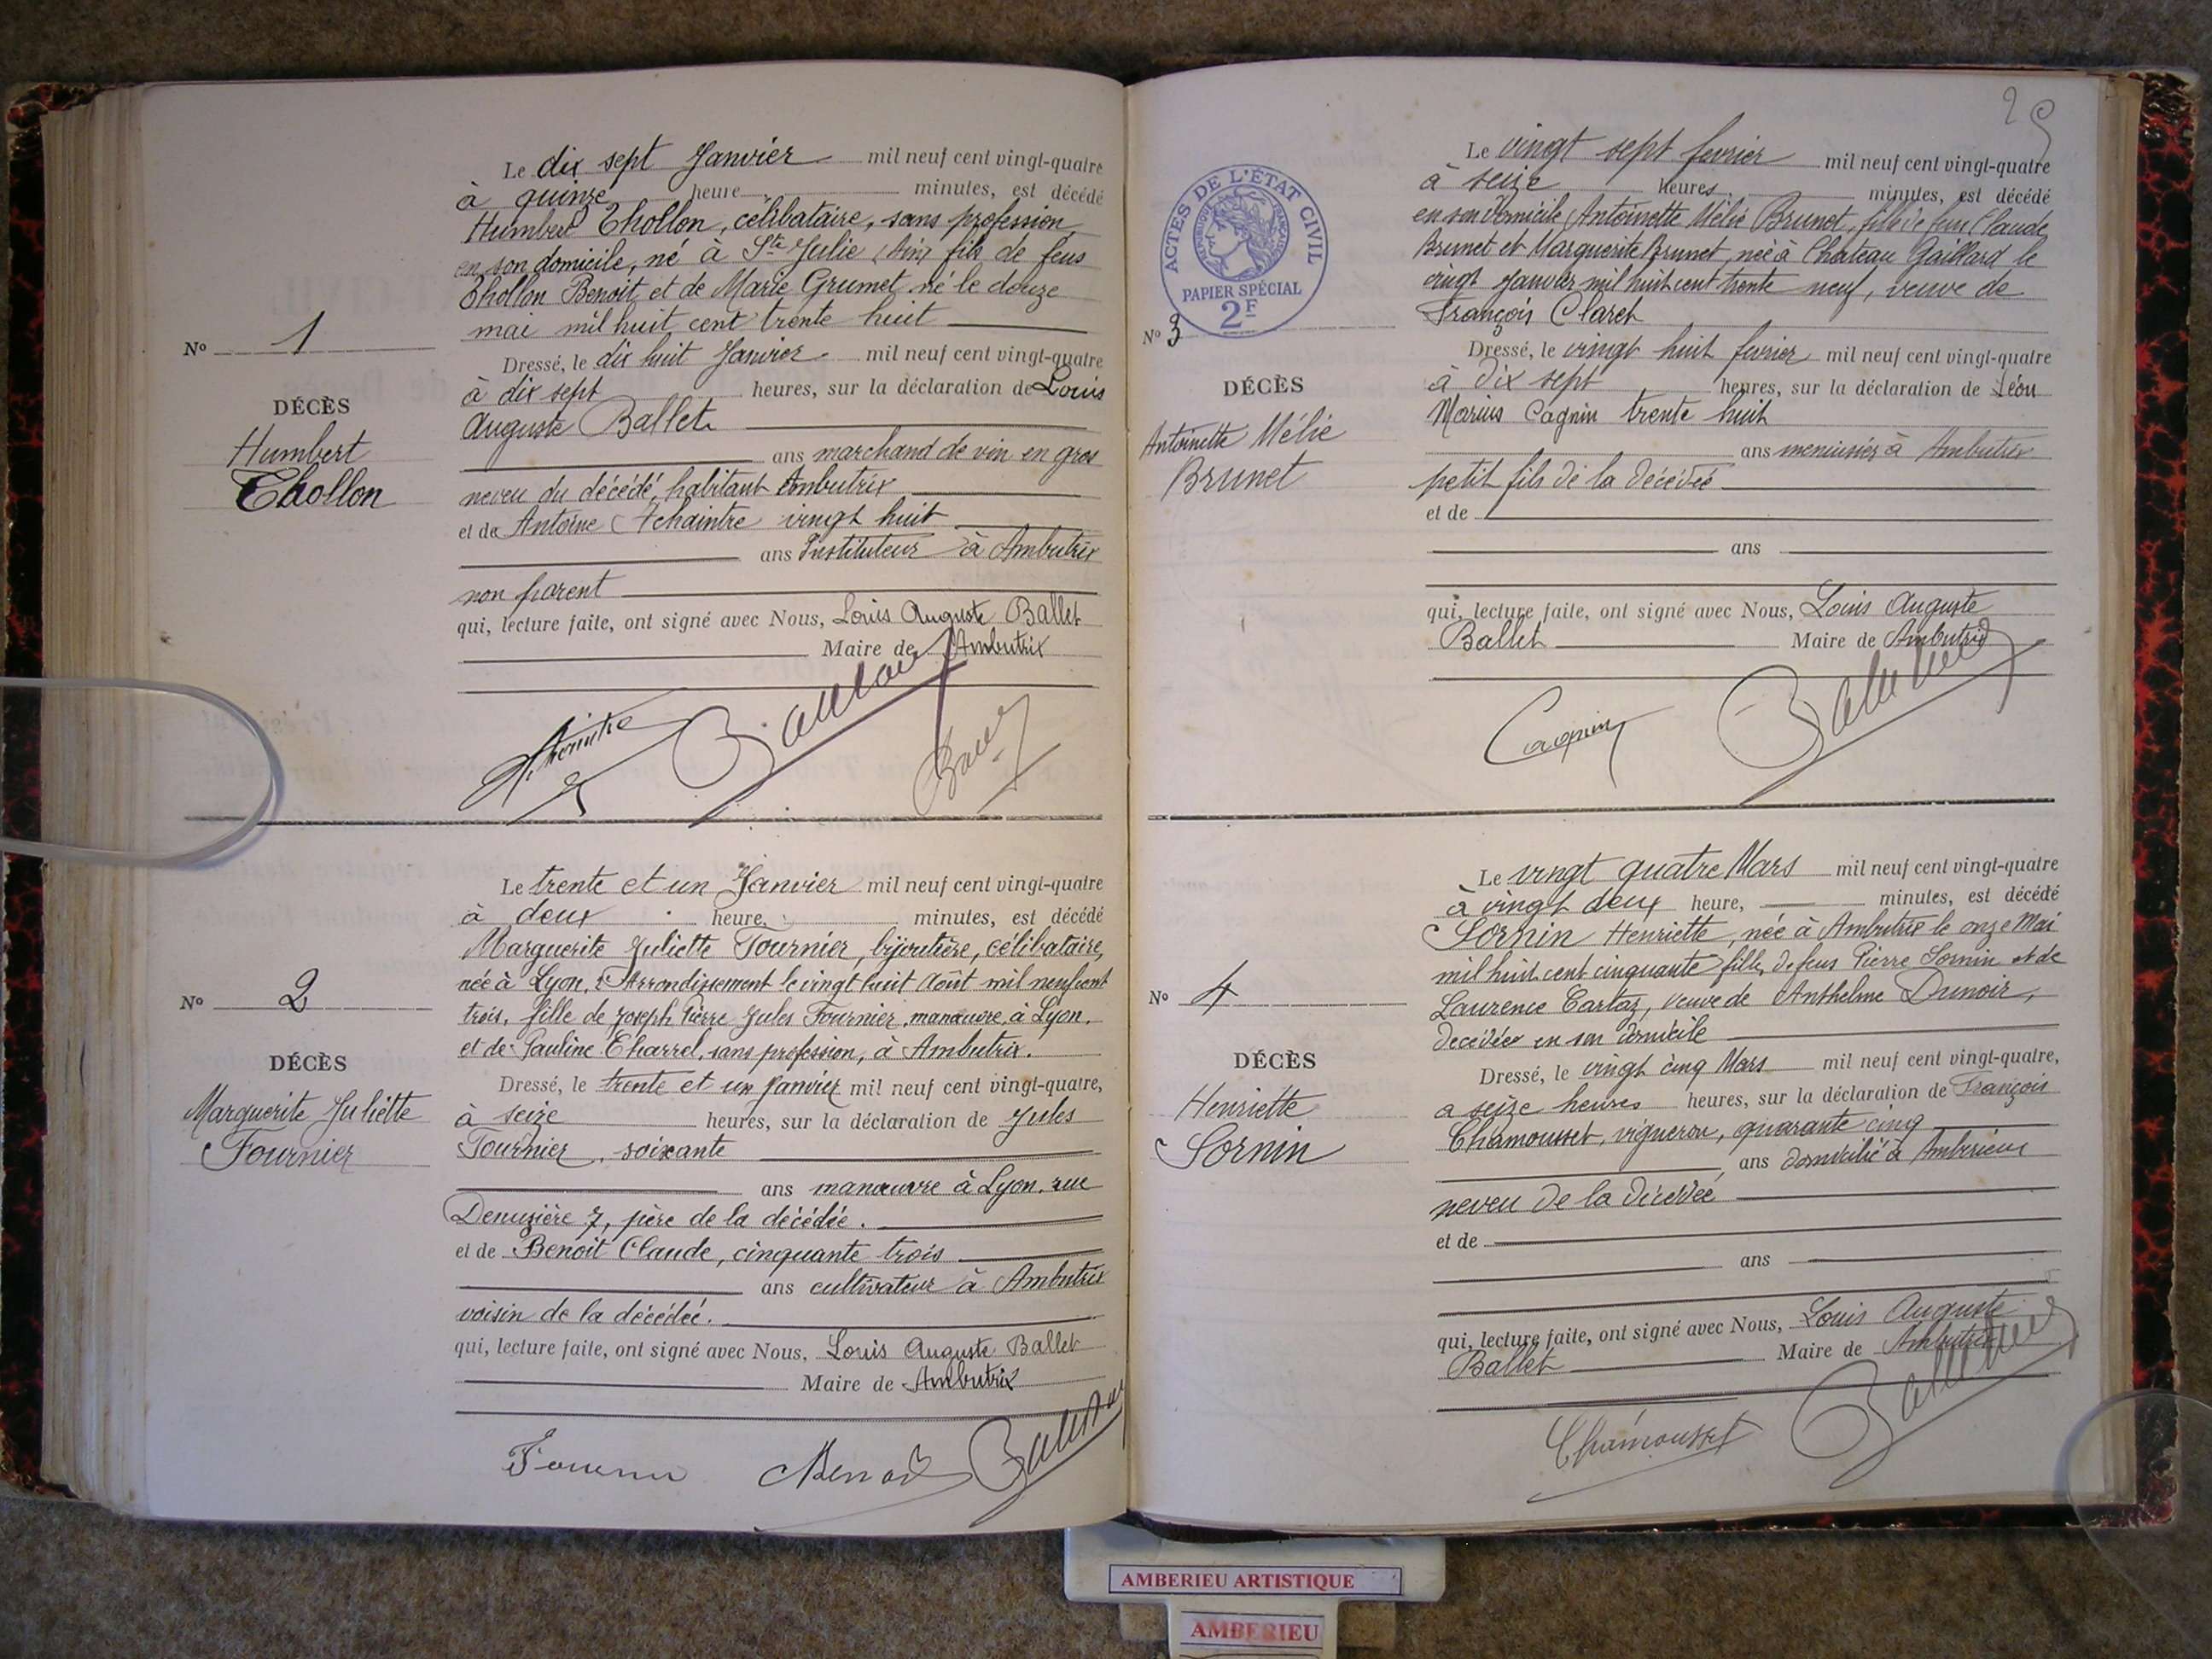 Le dix sept Janvier mil neuf cent vingt-quatre
à quinze heure minutes, est décédé
Humbert Thollon, célibataire, sans profession,
en son domicile, né à Ste Julie (Ain) fils de feus
Thollon Benoit et de Marie Grumet né le douze
mai mil huit cent trente huit
Nº 1
Dressé, le dix huit Janvier mil neuf cent vingt-quatre
à dix sept heures, sur la déclaration de Louis
Auguste Ballet
DÉCÈS
Humbert
Thollon
ans marchand de vin en gros
neveu du décédé, habitant Ambutrix
et de Antoine Achaintre vingt huit
ans Instituteur à Ambutrix
non parent
qui, lecture faite, ont signé avec Nous, Louis Auguste Ballet
Maire de Ambutrix
Le trente et un Janvier mil neuf cent vingt-quatre
à deux heure, minutes, est décédé
Marguerite Juliette Fournier, bijoutière, célibataire,
née à Lyon, Arrondissement le vingt huit Août mil neuf cent
trois, fille de Joseph Pierre Jules Fournier, manœuvre, à Lyon,
et de Pauline Charrel, sans profession, à Ambutrix.
Nº 2
DÉCÈS
Marguerite Juliette
Fournier
Dressé, le trente et un Janvier mil neuf cent vingt-quatre,
à seize heures, sur la déclaration de Jules
Fournier, soixante
ans manœuvre à Lyon, rue
Denuzière 7, père de la décédée.
et de Benoit Claude, cinquante trois
ans cultivateur à Ambutrix
voisin de la décédée.
qui, lecture faite, ont signé avec Nous, Louis Auguste Ballet
Maire de Ambutrix
Benoit
25
ACTES DE L'ÉTAT CIVIL
RÉPUBLIQUE FRANÇAISE
PAPIER SPÉCIAL
2F
Le vingt sept fevrier mil neuf cent vingt-quatre
à seize heures minutes, est décédé
en son domicile Antoinette Mélie Brunet, fille de feu Claude
Brunet et Marguerite Brunet, née à Chateau Gaillard le
vingt janvier mil huit cent trente neuf, veuve de
François Claret
Nº 3
DÉCÈS
Antoinette Mélie
Brunet
Dressé, le vingt huit fevrier mil neuf cent vingt-quatre
à dix sept heures, sur la déclaration de Léon
Marius Cagnin trente huit
ans menuisier à Ambutrix
petit fils de la décédée
et de
ans
qui, lecture faite, ont signé avec Nous, Louis Auguste
Ballet Maire de Ambutrix
Cagnin
Le vingt quatre Mars mil neuf cent vingt-quatre
à vingt deux heure, minutes, est décédé
Sornin Henriette, née à Ambutrix le onze Mai
mil huit cent cinquante fille de feus Pierre Sornin et de
Laurence Cartaz, veuve de Anthelme Dunoir,
decédée en son domicile
Nº 4
DÉCÈS
Henriette
Sornin
Dressé, le vingt cinq Mars mil neuf cent vingt-quatre,
a seize heures heures, sur la déclaration de François
Chamousset, vigneron, quarante cinq
ans domicilié à Ambérieux
neveu de la décédée
et de
ans
qui, lecture faite, ont signé avec Nous, Louis Auguste
Ballet Maire de Ambutrix
Chamousset
AMBERIEU ARTISTIQUE
AMBERIEU